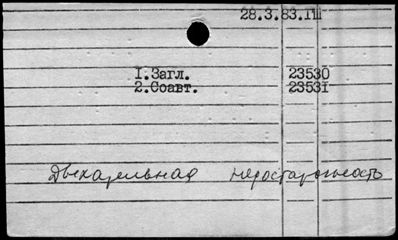 28.3.83.IШ
1.Загл. 23530
2.Соавт. 23531
Дыхательная недостаточность